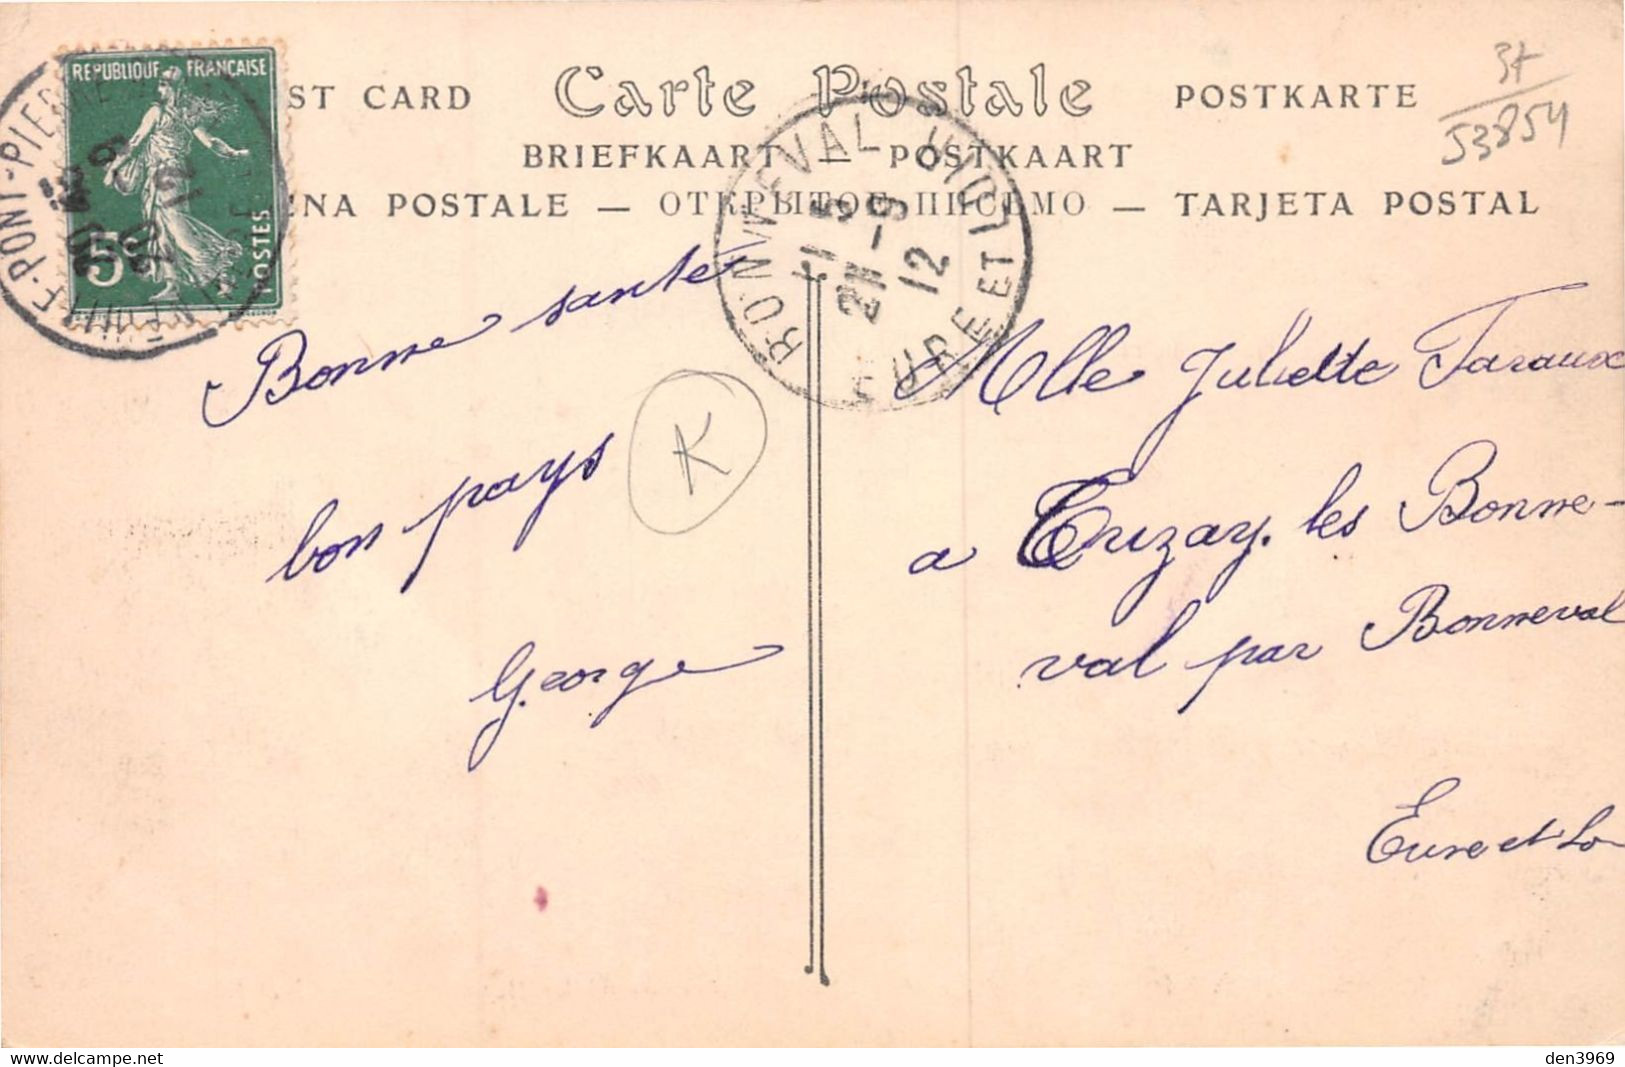 REPUBLIQUE FRANÇAISE
5c
POSTES
ST CARD Carte Postale POSTKARTE
BRIEFKAART — POSTKAART
ENA POSTALE — ОТКРЫТОЕ ПИСЬМО — TARJETA POSTAL
37
53854
NEUILLÉ-PONT-PIERRE
BONNEVAL
EURE ET L
21-9
12
K
Bonne santé
bon pays
George
Mlle Juliette Taraux
a Cruzay. les Bonne-
val par Bonneval
Eure et Lo
den3969